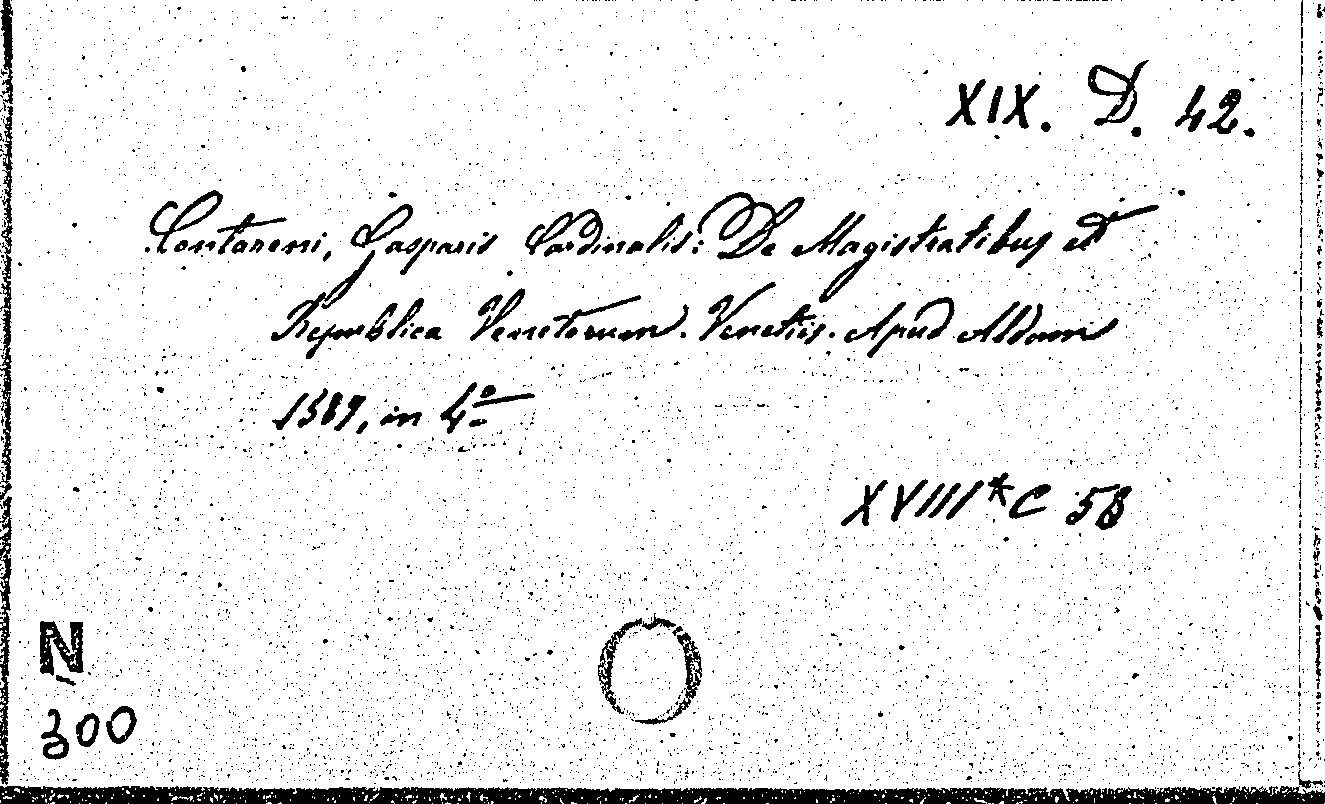 XIX. D. 42.
Contareni, Gasparis Cardinalis: De Magistratibus et
Republica Venetorum. Venetiis. Apud Aldum
1589, in 4º
XVIII* C 58
N
300